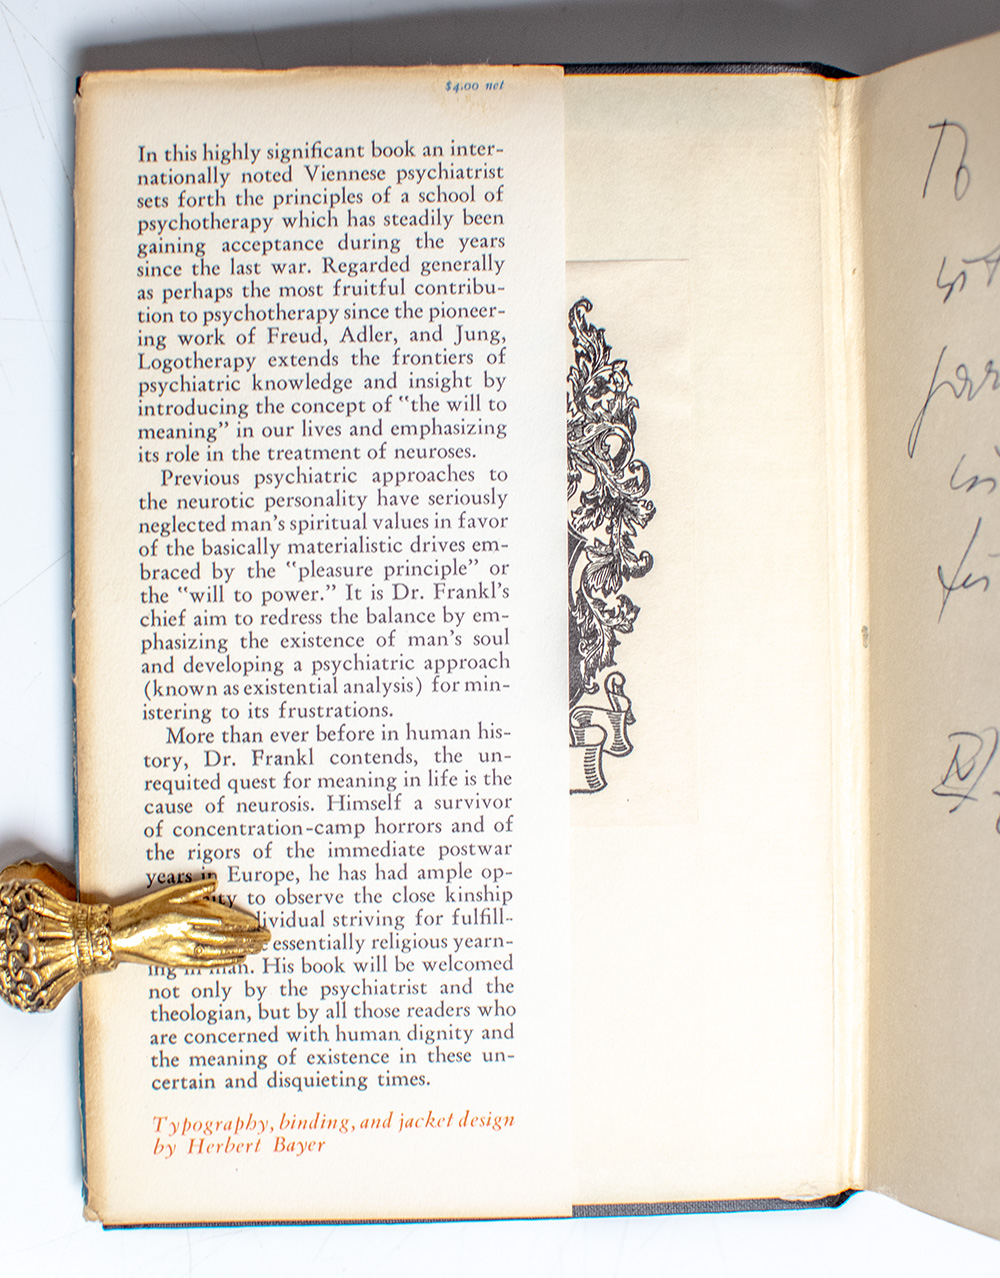 $4.00 net
In this highly significant book an inter-
nationally noted Viennese psychiatrist
sets forth the principles of a school of
psychotherapy which has steadily been
gaining acceptance during the years
since the last war. Regarded generally
as perhaps the most fruitful contribu-
tion to psychotherapy since the pioneer-
ing work of Freud, Adler, and Jung,
Logotherapy extends the frontiers of
psychiatric knowledge and insight by
introducing the concept of "the will to
meaning" in our lives and emphasizing
its role in the treatment of neuroses.
Previous psychiatric approaches to
the neurotic personality have seriously
neglected man's spiritual values in favor
of the basically materialistic drives em-
braced by the "pleasure principle" or
the "will to power." It is Dr. Frankl's
chief aim to redress the balance by em-
phasizing the existence of man's soul
and developing a psychiatric approach
(known as existential analysis) for min-
istering to its frustrations.
More than ever before in human his-
tory, Dr. Frankl contends, the un-
requited quest for meaning in life is the
cause of neurosis. Himself a survivor
of concentration-camp horrors and of
the rigors of the immediate postwar
years in Europe, he has had ample op-
to observe the close kinship
striving for fulfill-
essentially religious yearn-
ing in man. His book will be welcomed
not only by the psychiatrist and the
theologian, but by all those readers who
are concerned with human dignity and
the meaning of existence in these un-
certain and disquieting times.
Typography, binding, and jacket design
by Herbert Bayer
To